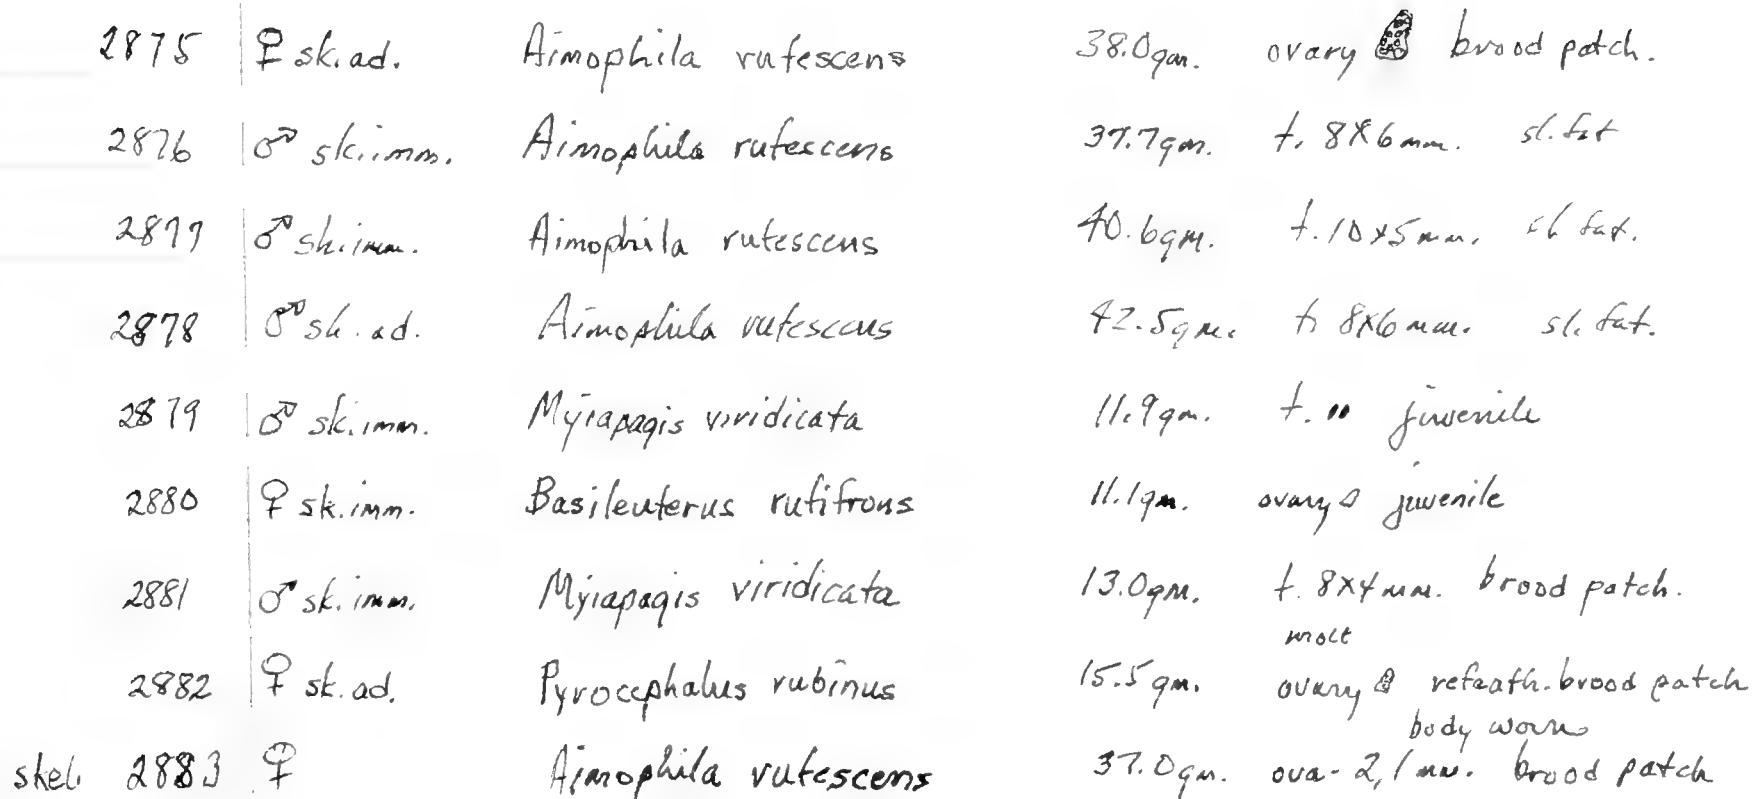 2875 ♀ sk. ad. Aimophila rufescens 38.0 gm. ovary brood patch.
2876 ♂ sk. imm. Aimophila rufescens 37.7 gm. t. 8x6 mm. sl. fat
2877 ♂ sk. imm. Aimophila rufescens 40.6 gm. t. 10x5 mm. sl. fat.
2878 ♂ sk. ad. Aimophila rufescens 42.5 gm. t. 8x6 mm. sl. fat.
2879 ♂ sk. imm. Myiapagis viridicata 11.9 gm. t. juvenile
2880 ♀ sk. imm. Basileuterus rufifrons 11.1 gm. ovary juvenile
2881 ♂ sk. imm. Myiapagis viridicata 13.0 gm. t. 8x4 mm. brood patch.
molt
2882 ♀ sk. ad. Pyrocephalus rubinus 15.5 gm. ovary refeath. brood patch
body worn
skel. 2883 ♀ Aimophila rufescens 37.0 gm. ova - 2, 1 mm. brood patch